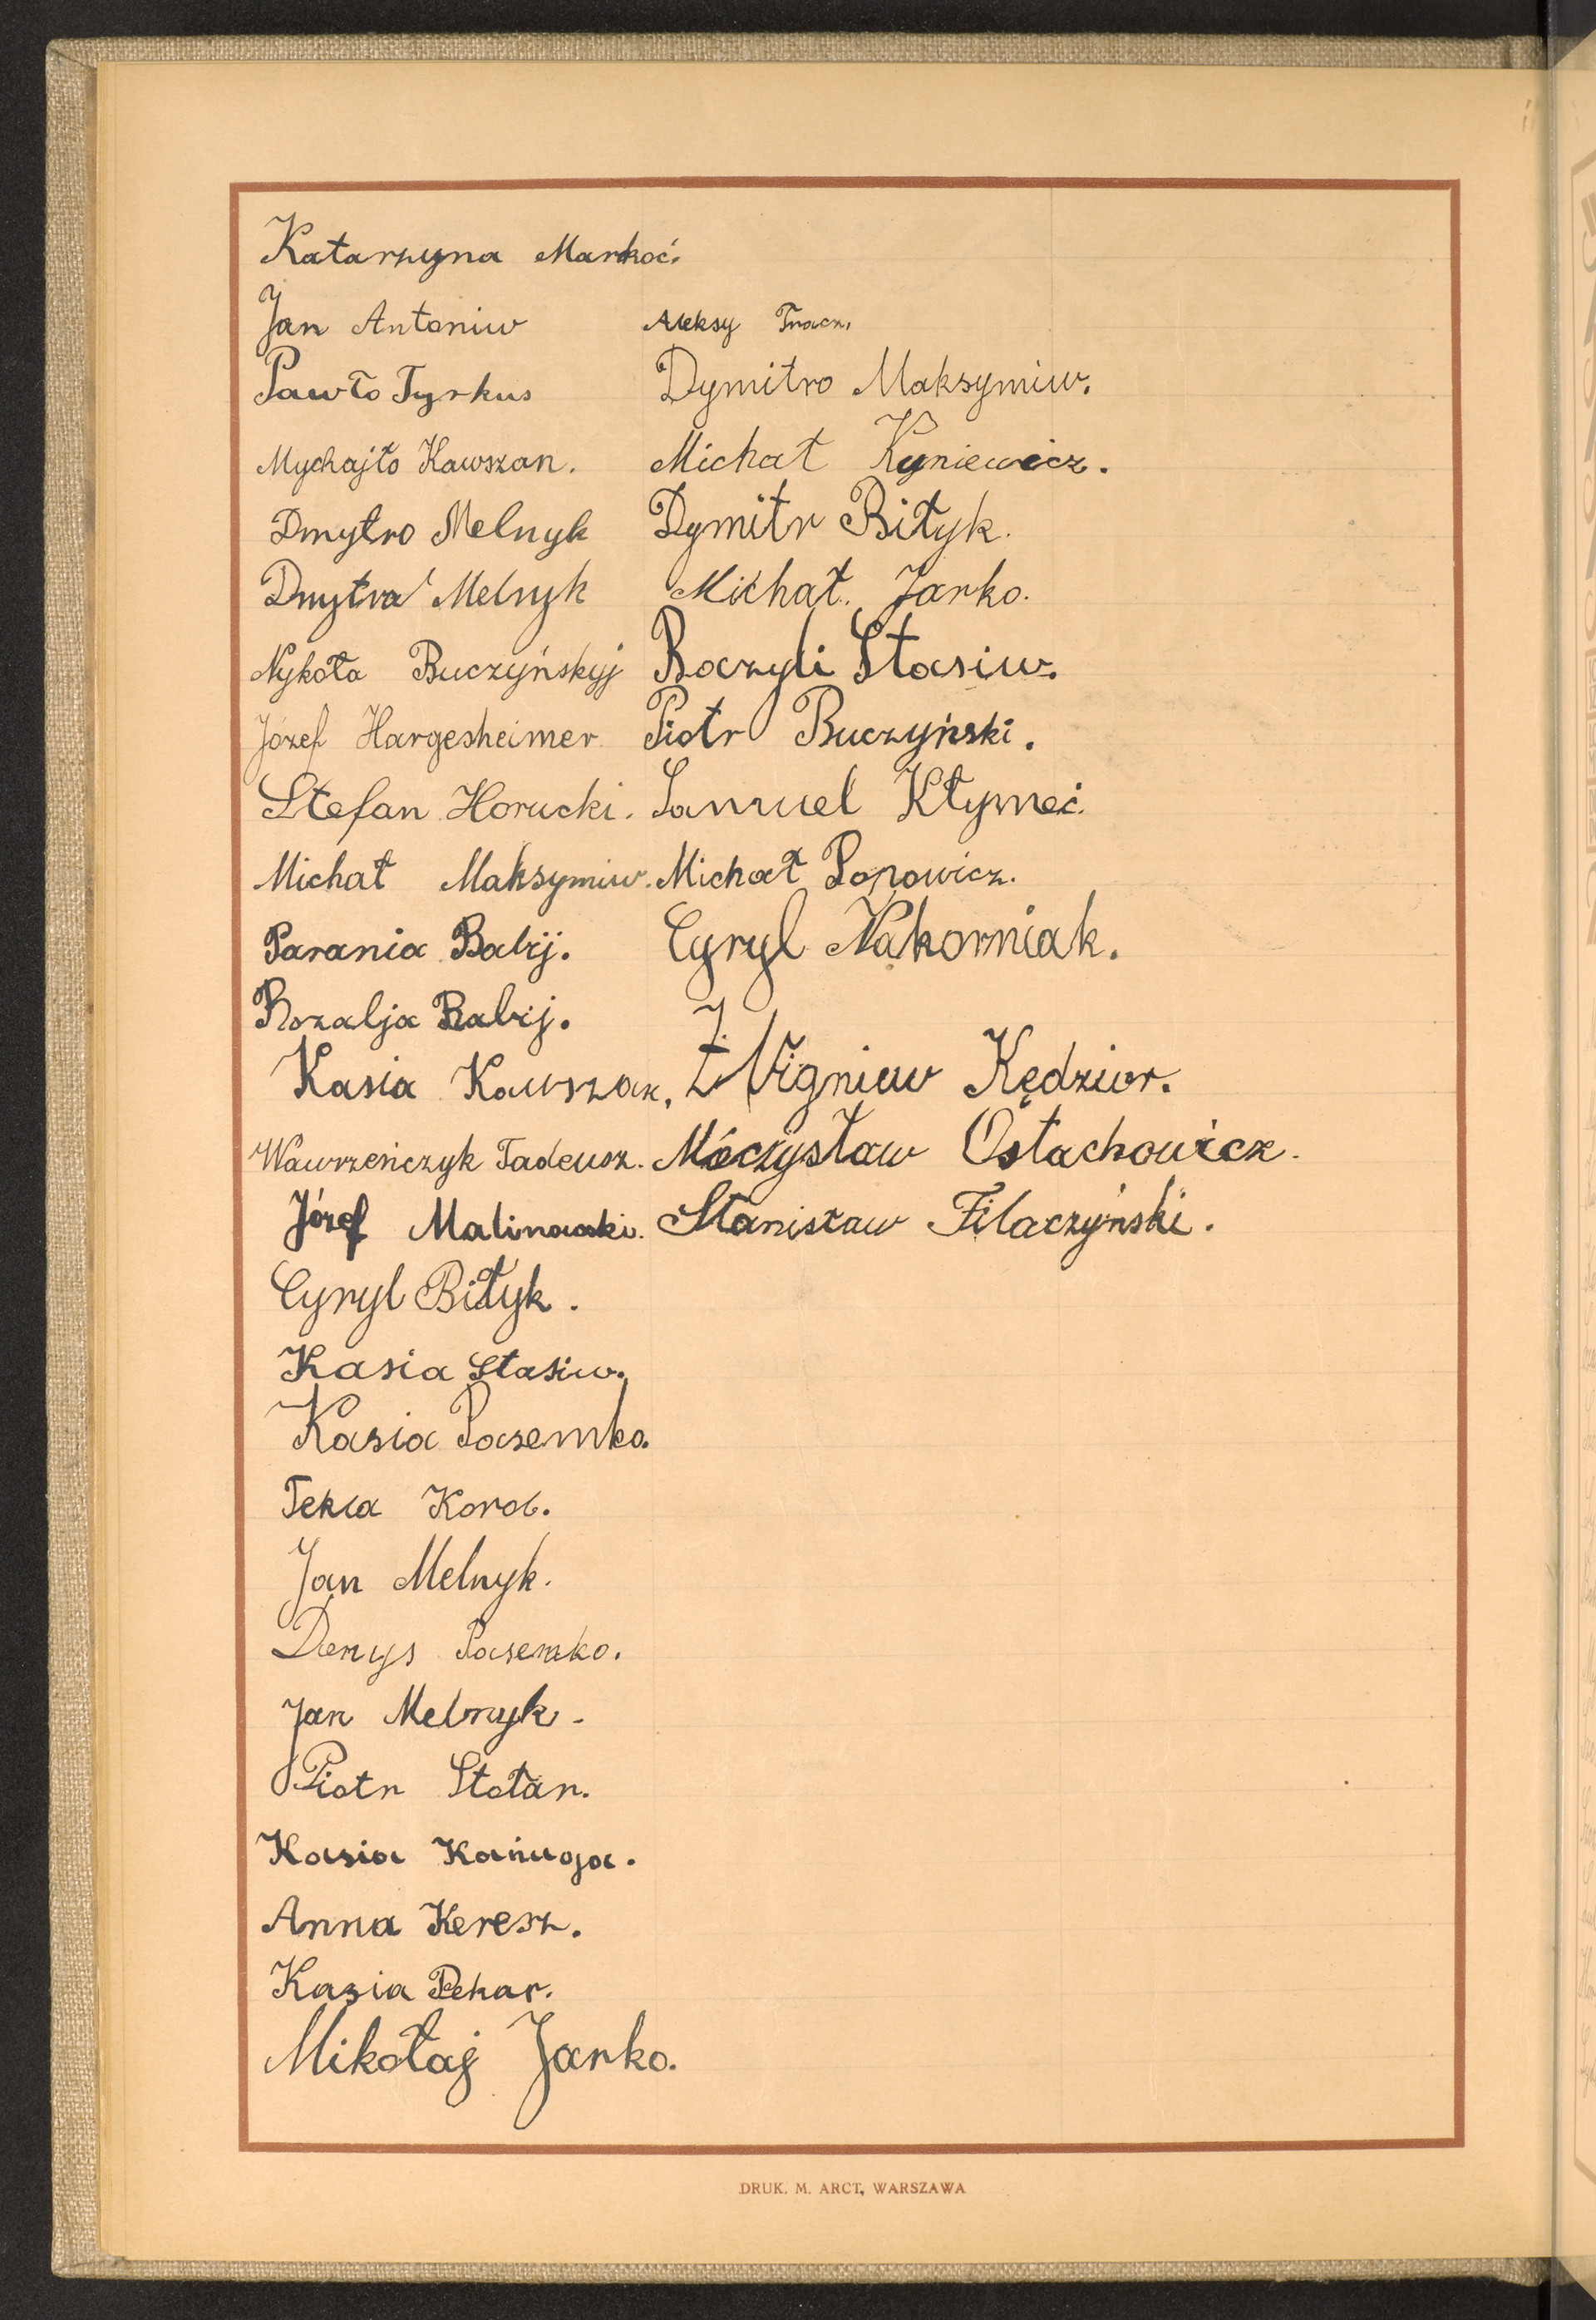 Katarzyna Markoć.
Jan Antoniw
Pawło Tyrkus
Mychajło Kawszan.
Dmytro Melnyk
Dmytro Melnyk
Nykoła Buczyńskyj
Józef Hargesheimer
Stefan Horucki.
Michał Maksymiw.
Parania Babij.
Rozalja Babij.
Kasia Kawszan.
Wawrzeńczyk Tadeusz.
Józef Malinowski.
Cyryl Biłyk.
Kasia Stasiw.
Kasia Pasemko.
Tekla Korol.
Jan Melnyk.
Denys Pasemko.
Jan Melnyk.
Piotr Stołar.
Kasia Kaniuga.
Anna Keresz.
Kasia Pekar.
Mikołaj Jarko.
Aleksy Tracz.
Dymitro Maksymiw.
Michał Kyniewicz.
Dymitr Biłyk.
Michał Jarko.
Bazyli Stasiw.
Piotr Buczyński.
Samuel Kłymeć.
Michał Popowicz.
Cyryl Nakorniak.
Zbigniew Kędzior.
Mieczysław Ostachowicz.
Stanisław Filaczyński.
DRUK. M. ARCT, WARSZAWA